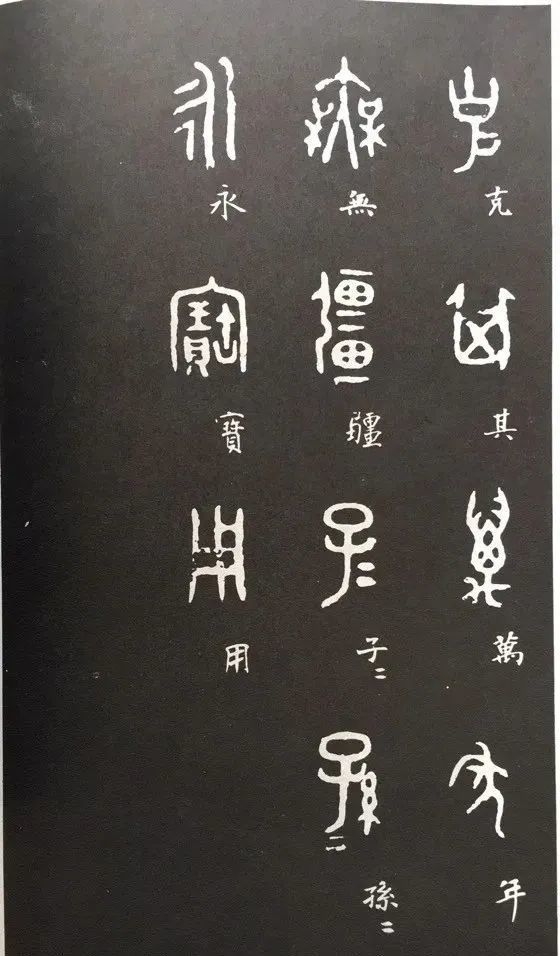 克其萬年
無疆子二孫二
永寶用